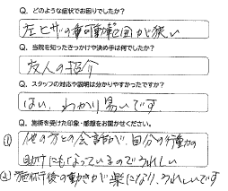 Q. どのような症状でお困りでしたか?
左ヒザの可動範囲が狭い
Q. 当院を知ったきっかけや決め手は何でしたか?
友人の紹介
Q. スタッフの対応や説明は分かりやすかったですか?
はい、わかり易いです
Q. 施術を受けた印象・感想をお聞かせください。
① 他の方との会話が、自分の行動力の
助けにもなっているのでうれしい
② 施術後の動きが楽になり、うれしいです